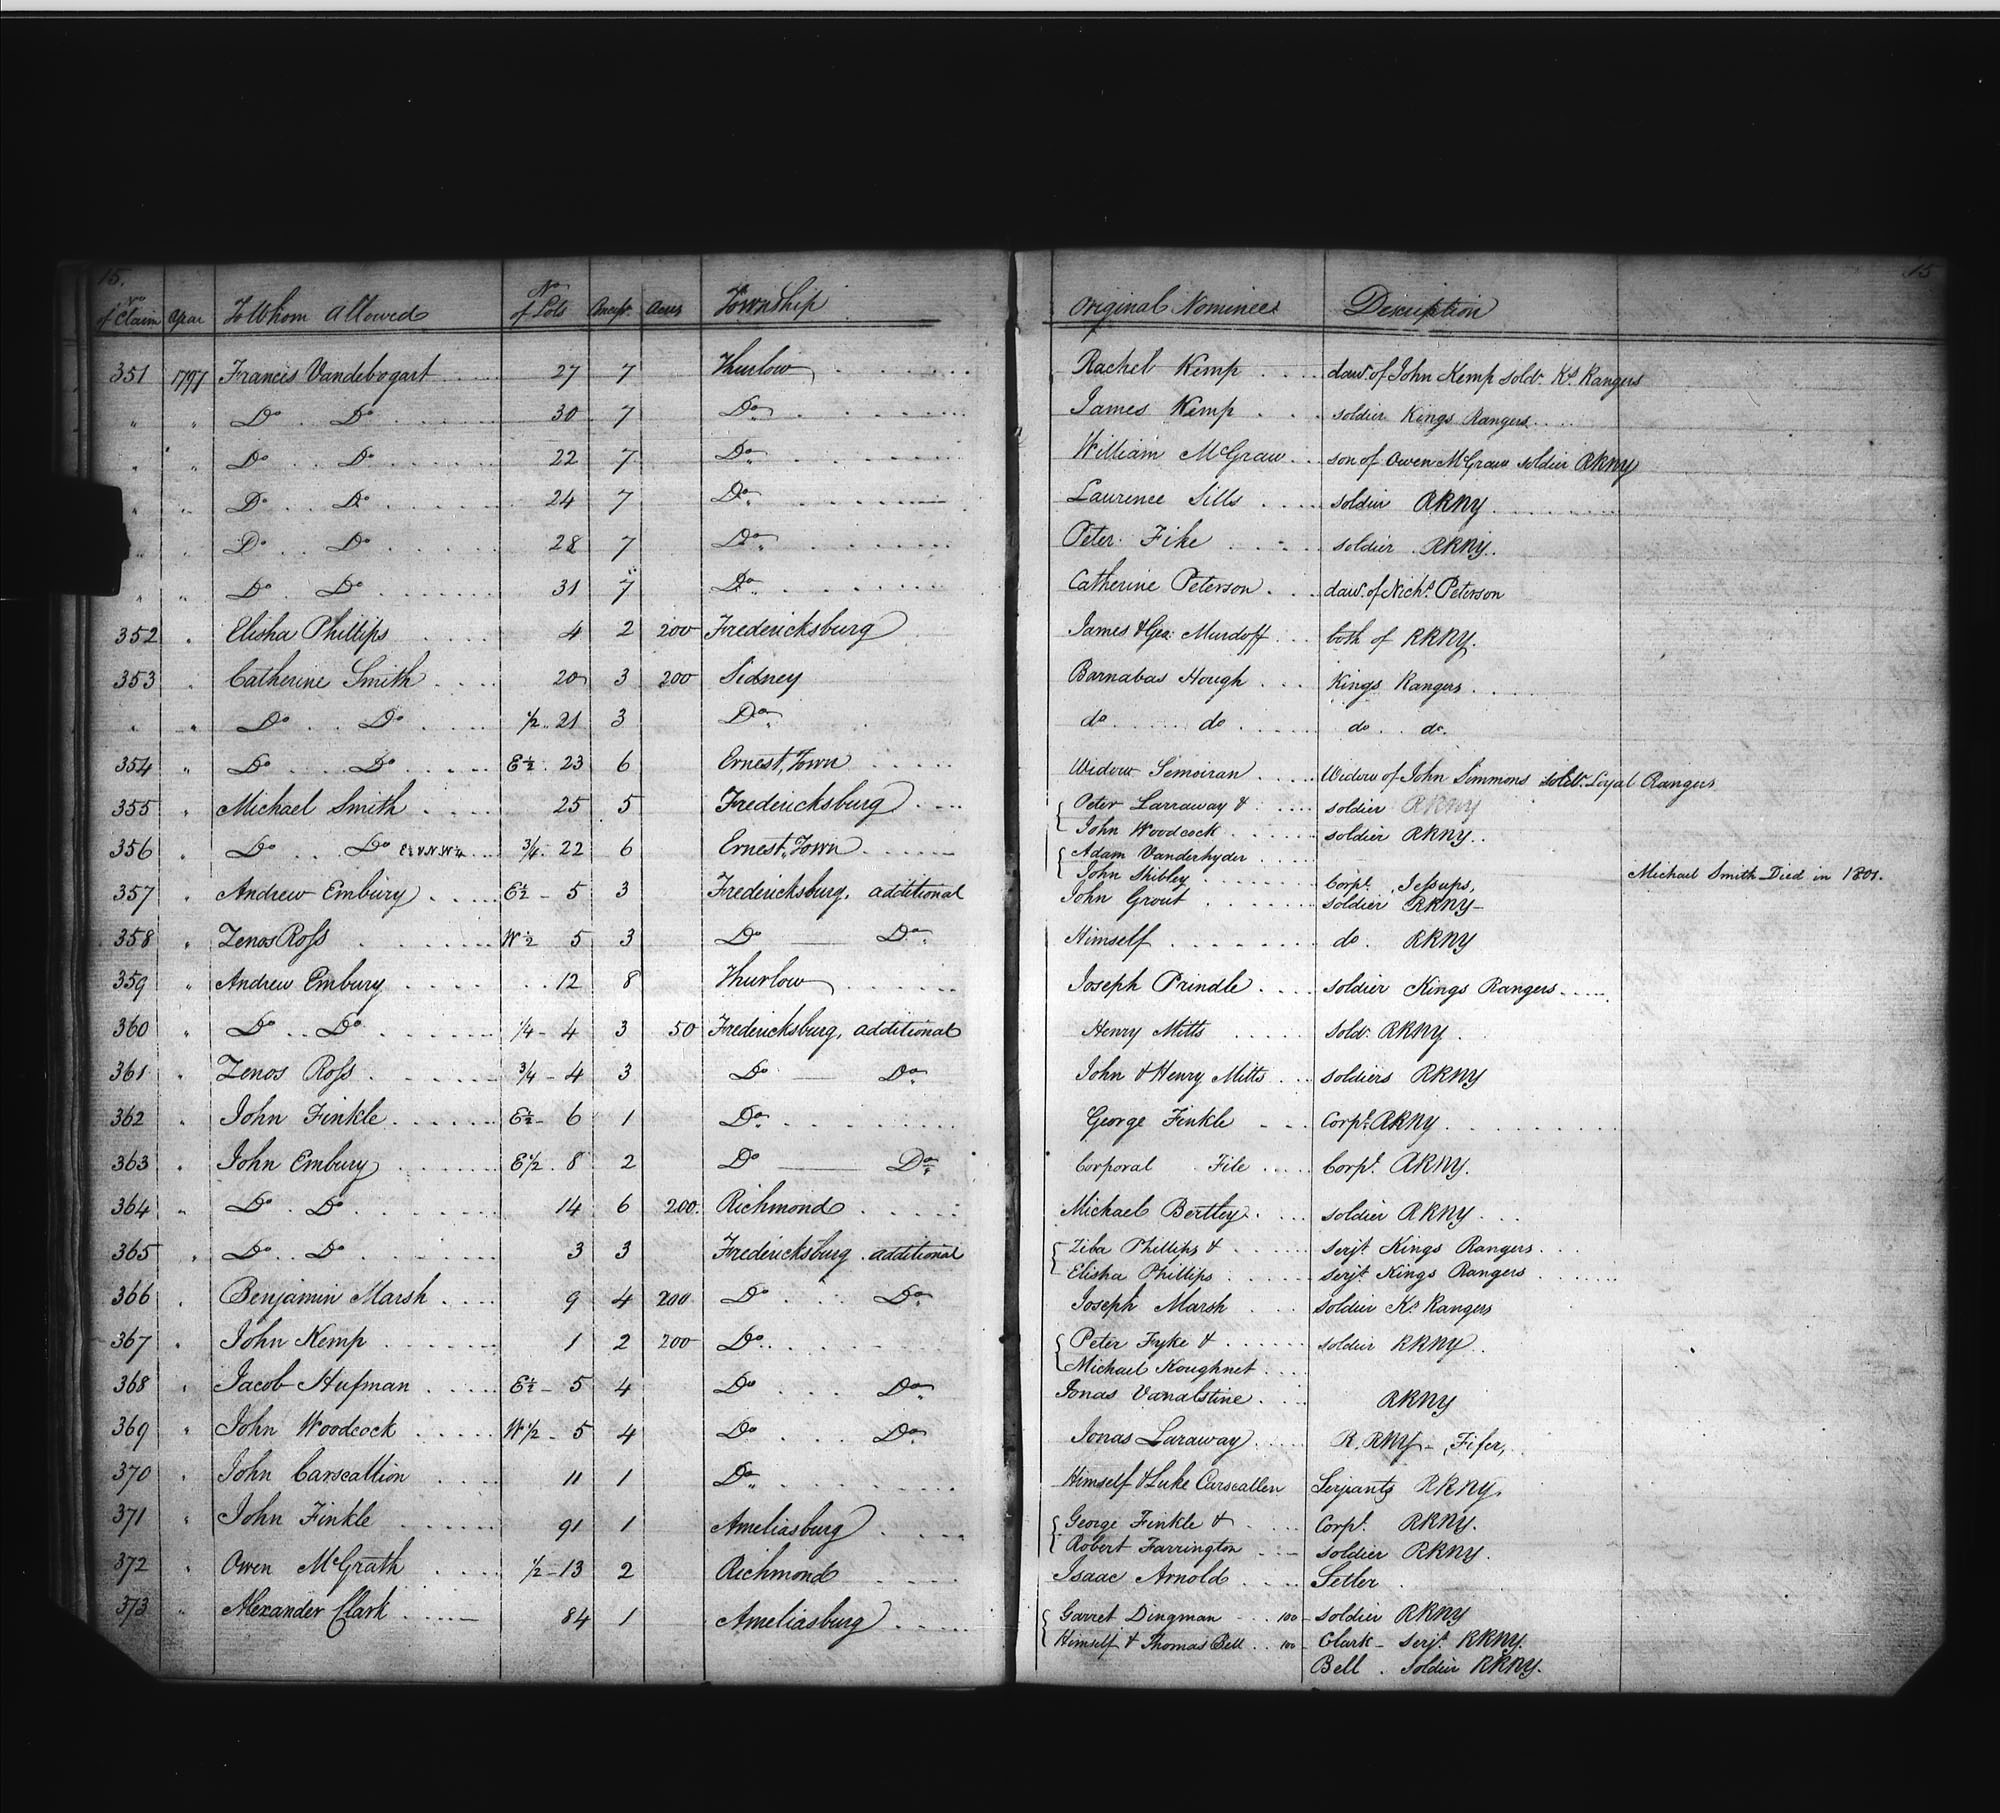 15. 15
No of Claim Year To Whom Allowed No of Lots Conceſs. Acres Township Original Nominees Description
351 1797 Francis Vandebogart 27 7 Thurlow Rachel Kemp daur. of John Kemp soldr. Ks Rangers
" " Do Do 30 7 Do James Kemp soldier Kings Rangers
" " Do Do 22 7 Do William McGraw son of Owen McGraw soldier RRNY
" " Do Do 24 7 Do Laurence Sills soldier RRNY
" " Do Do 28 7 Do Peter Fike soldier RRNY.
" " Do Do 31 7 Do Catherine Peterson daur. of Nichs. Peterson
352 " Elisha Phillips 4 2 200 Fredericksburg James & Geo: Murdoff both of RRNY.
353 " Catherine Smith 20 3 200 Sidney Barnabas Hough Kings Rangers
" " Do Do 1/2 21 3 Do do do do do.
354 " Do Do E 1/2 23 6 Ernest Town Widow Semoiran Widow of John Simmons soldr. Loyal Rangers
355 " Michael Smith 25 5 Fredericksburg Peter Larraway & soldier RRNY
John Woodcock soldier RRNY.
356 " Do Do 3/4 22 6 Ernest Town Adam Vanderhyder
John Shibley Corpl. Jeſsups, Michael Smith Died in 1801.
357 " Andrew Embury E 1/2 5 3 Fredericksburg, additional John Grout soldier RRNY
358 " Zenos Roſs W 1/2 5 3 Do Do Himself do. RRNY
359 " Andrew Embury 12 8 Thurlow Joseph Prindle soldier Kings Rangers
360 " Do Do 1/4 4 3 50 Fredericksburg, additional Henry Mitts soldr. RRNY
361 " Zenos Roſs 3/4 4 3 Do Do John & Henry Mitts soldiers RRNY
362 " John Finkle E 1/2 6 1 Do George Finkle Corpl. RRNY
363 " John Embury E 1/2 8 2 Do Do Corporal File Corpl. RRNY.
364 " Do Do 14 6 200 Richmond Michael Bertley soldier RRNY
365 " Do Do 3 3 Fredericksburg additional Ziba Phillips & serjt Kings Rangers
Elisha Phillips serjt Kings Rangers
366 " Benjamin Marsh 9 4 200 Do Do Joseph Marsh soldier Ks Rangers
367 " John Kemp 1 2 200 Do Peter Fyke & soldier RRNY
Michael Koughnet
368 " Jacob Hufman E 1/2 5 4 Do Do Jonas Vanalstine RRNY
369 " John Woodcock W 1/2 5 4 Do Do Jonas Laraway R. RNY - Fifer,
370 " John Carscallion 11 1 Do Himself & Luke Carscallen Serjeants RRNY.
371 " John Finkle 91 1 Ameliasburg George Finkle & Corpl. RRNY.
Robert Farrington soldier RRNY.
372 " Owen McGrath 1/2 13 2 Richmond Isaac Arnold Setler
373 " Alexander Clark 84 1 Ameliasburg Garret Dingman 100 soldier RRNY
Himself & Thomas Bell 100 Clark - serjt. RRNY.
Bell . Soldier RRNY.